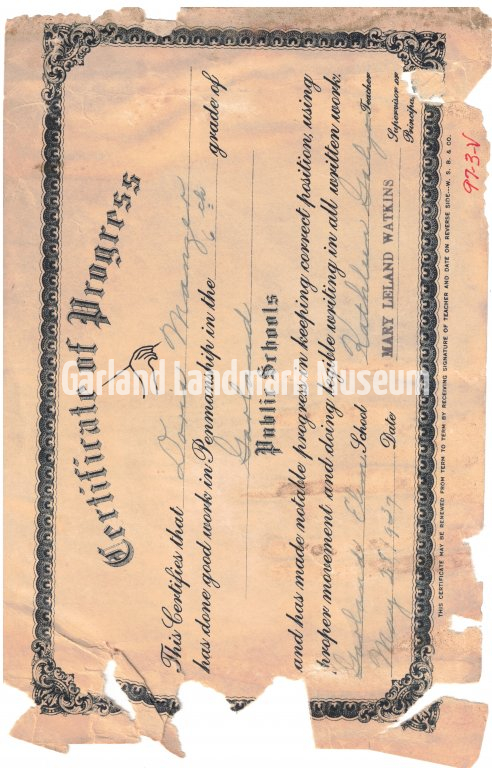 Certificate of Progress
This Certifies that
has done good work in Penmanship in the 6th grade of
Garland
Public Schools
and has made notable progress in keeping correct position, using
proper movement and doing legible writing in all written work.
Garland Elem School Kathleen Teacher
May 25, 1927 Date MARY LELAND WATKINS Supervisor or
Principal
THIS CERTIFICATE MAY BE RENEWED FROM TERM TO TERM BY RECEIVING SIGNATURE OF TEACHER AND DATE ON REVERSE SIDE—W. S. B. & CO.
97-3-V
Garland Landmark Museum